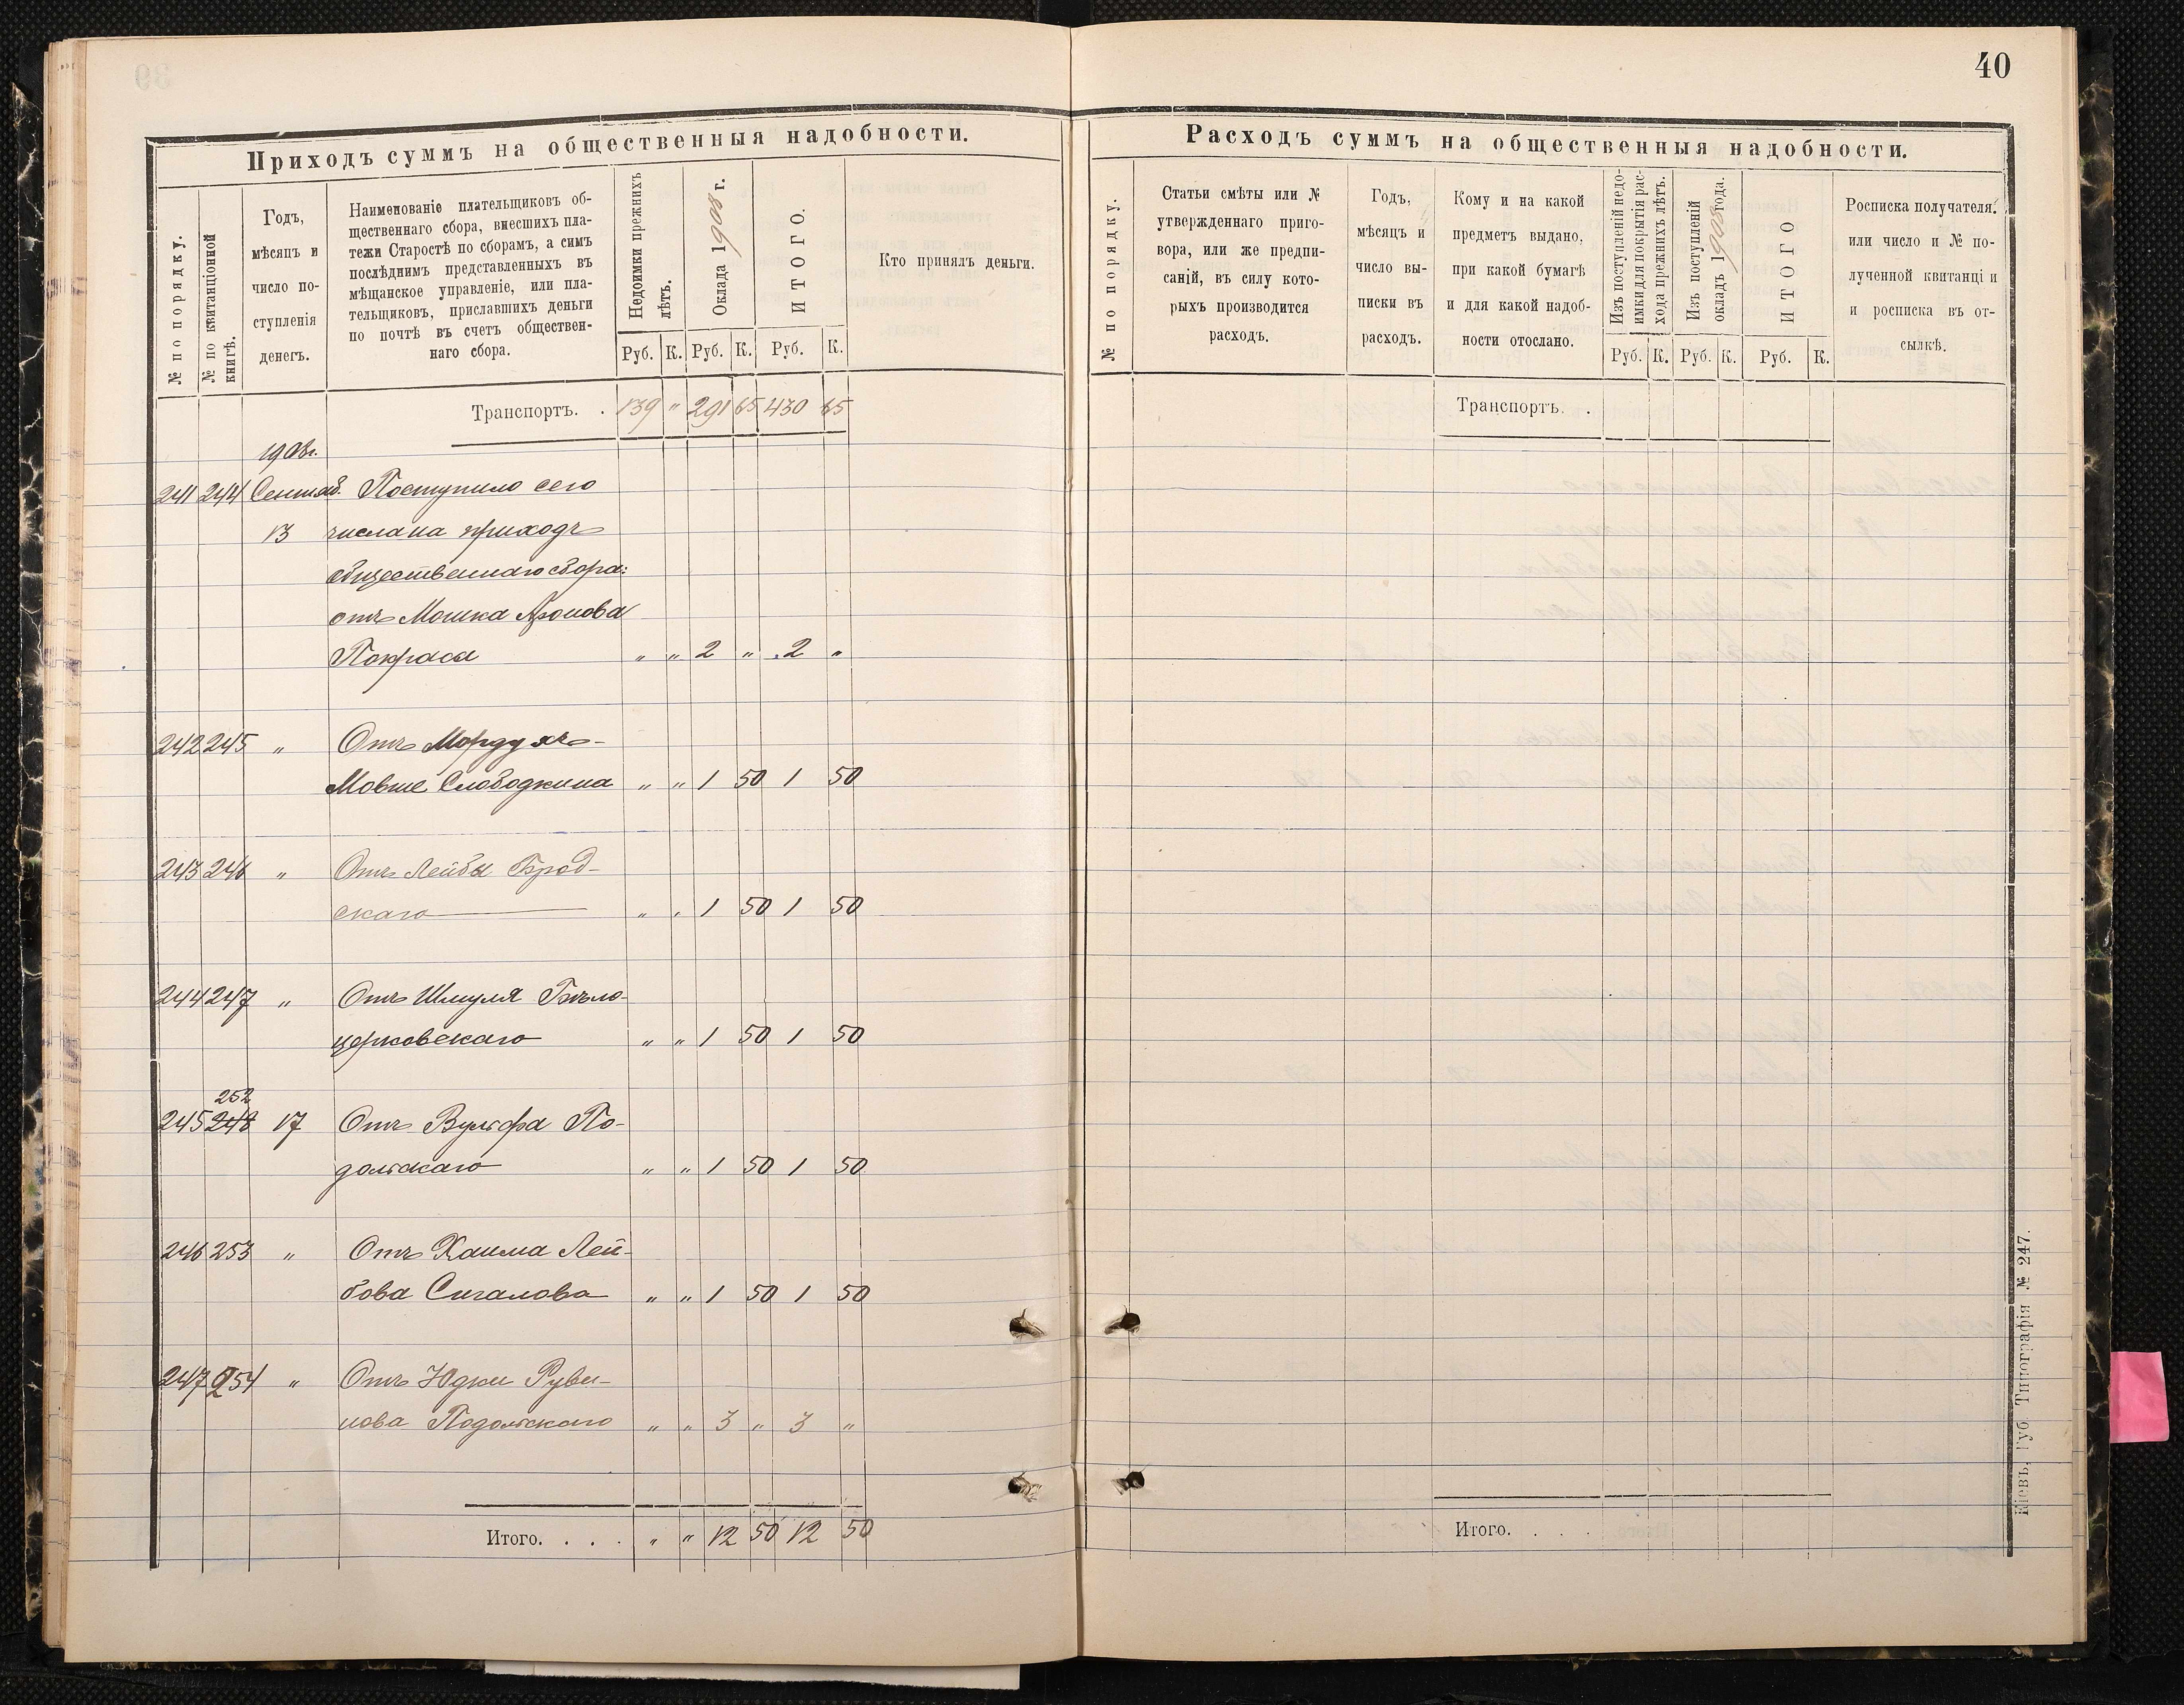 40
Приходъ суммъ на общественныя надобности.
№ по порядку.
№ по квитанціонной
книгѣ.
Годъ,
мѣсяцъ и
число по-
ступленія
денегъ.
Наименованіе плательщиковъ об-
щественнаго сбора, внесшихъ пла-
тежи Старостѣ по сборамъ, а симъ
послѣднимъ представленныхъ въ
мѣщанское управленіе, или пла-
тельщиковъ, приславшихъ деньги
по почтѣ въ счетъ обществен-
наго сбора.
Недоимки прежнихъ
лѣтъ.
Оклада 1908 г.
ИТОГО.
Руб. К. Руб. К. Руб. К.
Кто принялъ деньги.
Транспортъ. . 139 " 291 65 430 65
1908г.
241 244 Сентяб. Поступило сего
13 числа на приходъ
общественнаго сбора:
отъ Мошка Аронова
Покраса " " 2 " 2 "
242 245 " Отъ Мордухъ-
Мовше Слободкина " " 1 50 1 50
243 246 " Отъ Лейбы Брод-
скаго " " 1 50 1 50
244 247 " Отъ Шмуля Бѣло-
церковскаго " " 1 50 1 50
252
245 248 17 Отъ Вульфа По-
дольскаго " " 1 50 1 50
246 253 " Отъ Хаима Лей-
бова Сигалова " " 1 50 1 50
247 254 " Отъ Юдки Руви-
нова Подольскаго " " 3 " 3 "
Итого. . . . " " 12 50 12 50
Расходъ суммъ на общественныя надобности.
№ по порядку.
Статьи смѣты или №
утвержденнаго приго-
вора, или же предпи-
саній, въ силу кото-
рыхъ производится
расходъ.
Годъ,
мѣсяцъ и
число вы-
писки въ
расходъ.
Кому и на какой
предметъ выдано,
при какой бумагѣ
и для какой надоб-
ности отослано.
Изъ поступленій недо-
имки для покрытія рас-
хода прежнихъ лѣтъ.
Изъ поступленій
окладъ 1908 года.
ИТОГО
Руб. К. Руб. К. Руб. К.
Росписка получателя.
или число и № по-
лученной квитанціи
и росписка въ от-
сылкѣ.
Транспортъ. .
Итого. . . .
Кіевъ, Губ. Типографія № 247.